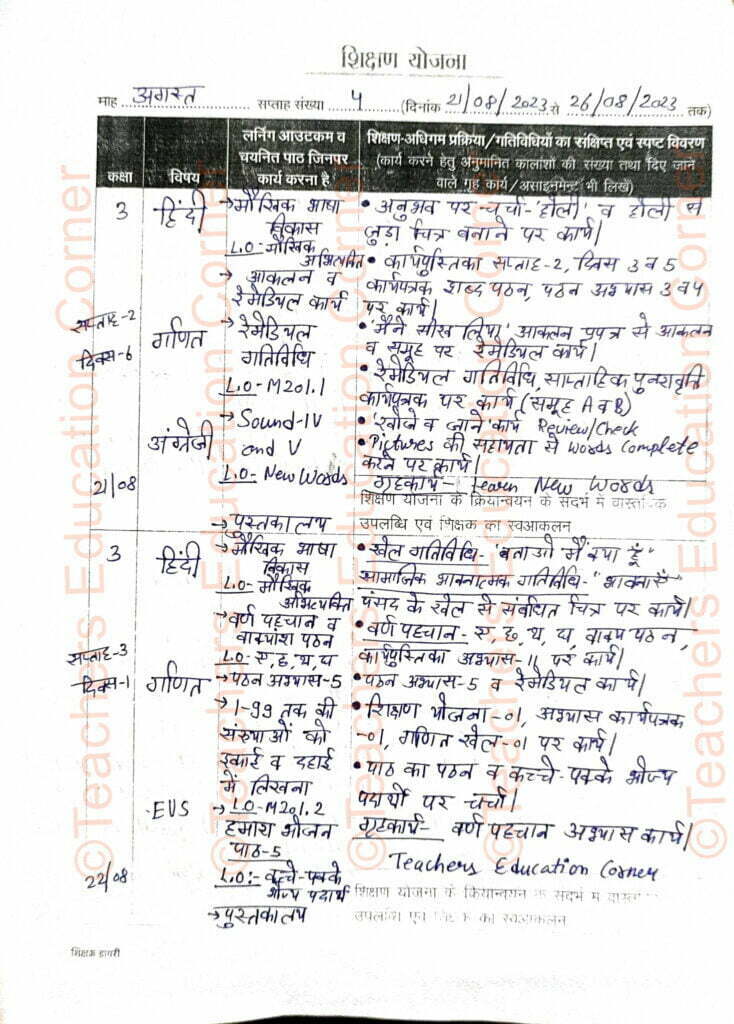 शिक्षण योजना
माह अगस्त सप्ताह संख्या 4 (दिनांक 21/08/2023 से 26/08/2023 तक)
कक्षा
विषय
लर्निंग आउटकम व
चयनित पाठ जिनपर
कार्य करना है
शिक्षण-अधिगम प्रक्रिया/गतिविधियों का संक्षिप्त एवं स्पष्ट विवरण
(कार्य करने हेतु अनुमानित कालांशों की संख्या तथा दिए जाने
वाले गृह कार्य/असाइनमेन्ट भी लिखें)
3
सप्ताह-2
दिवस-6
21/08
हिंदी
गणित
अंग्रेजी
→ मौखिक भाषा
विकास
L.O:- मौखिक
अभिव्यक्ति
→ आकलन व
रेमेडियल कार्य
→ रेमेडियल
गतिविधि
L.O-M201.1
→ Sound-IV
and V
L.O- New Words
→ पुस्तकालय
• अनुभव पर चर्चा-'होली' व होली से
जुड़ा चित्र बनाने पर कार्य।
• कार्यपुस्तिका सप्ताह-2, दिवस 3 व 5
कार्यपत्रक शब्द पठन, पठन अभ्यास 3 व 4
पर कार्य।
• 'मैंने सीख लिया' आकलन प्रपत्र से आकलन
व समूह पर रेमेडियल कार्य।
• रेमेडियल गतिविधि, साप्ताहिक पुनरावृति
कार्यपत्रक पर कार्य (समूह A व B)
• 'खोजें व जानें' कार्य Review/Check
• Pictures की सहायता से Words Complete
करने पर कार्य।
गृहकार्य- Learn New Words
शिक्षण योजना के क्रियान्वयन के संदर्भ में वास्तविक
उपलब्धि एवं शिक्षक का स्वआकलन
3
सप्ताह-3
दिवस-1
22/08
हिंदी
गणित
EVS
→ मौखिक भाषा
विकास
L.O- मौखिक
अभिव्यक्ति
→ वर्ण पहचान व
वाक्यांश पठन
L.O:- रु, छ, थ, य
→ पठन अभ्यास-5
→ 1-99 तक की
संख्याओं को
इकाई व दहाई
में लिखना
→ L.O-M201.2
हमारा भोजन
पाठ-5
L.O:- कच्चे-पक्के
भोज्य पदार्थ
→ पुस्तकालय
• खेल गतिविधि- "बताओ मैं क्या हूँ"
सामाजिक भावनात्मक गतिविधि- "भावनाएँ"
पसंद के खेल से संबंधित चित्र पर कार्य।
• वर्ण पहचान- रु, छ, थ, य, वाक्य पठन,
कार्यपुस्तिका अभ्यास-11 पर कार्य।
• पठन अभ्यास-5 व रेमेडियल कार्य।
• शिक्षण योजना-01, अभ्यास कार्यपत्रक
-01, गणित खेल-01 पर कार्य।
• पाठ का पठन व कच्चे-पक्के भोज्य
पदार्थों पर चर्चा।
गृहकार्य- वर्ण पहचान अभ्यास कार्य।
Teachers Education Corner
शिक्षण योजना के क्रियान्वयन के संदर्भ में
उपलब्धि एवं शिक्षक का स्वआकलन
शिक्षक डायरी
©Teachers Education Corner
©Teachers Education Corner
©Teachers Education Corner
©Teachers Education Corner
©Teachers Education Corner